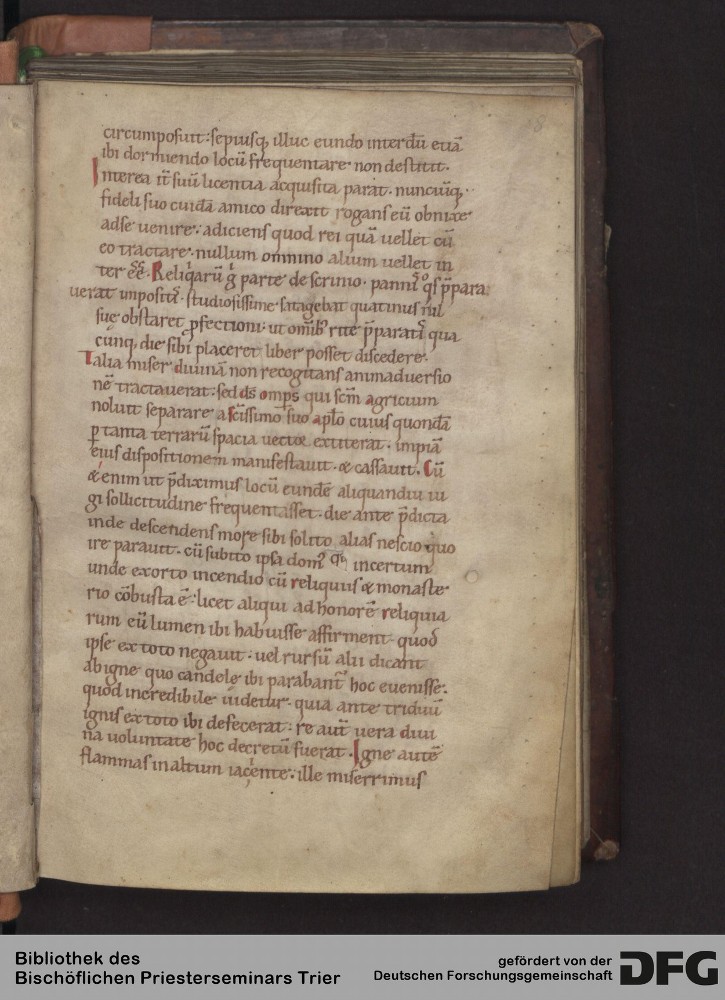 circumposuit : sepiusq; illuc eundo interdū etiā
ibi dormiendo locū frequentare non destitit.
Interea it̄ suū licentia acquisita parat. nunciūq;
fideli suo cuidā amico direxit rogans eū obnixe
ad se venire. adiciens quod rei quā vellet cū
eo tractare. nullum omnino alium vellet in
ter eē. Reliqarū g parte de scrinio. pannis qs p̄para
uerat impositis. studiosissime satagebat quatinus nil
suę obstaret ꝓfectioni. ut omīb; rite p̄paratis qua
cūnq; die sibi placeret liber posset discedere.
Talia miser diuinā non recogitans animaduersio
nē tractauerat. sed ds̄ omp̄s qui scm̄ agricium
noluit separare a scīssimo suo aplō cuius quondā
ꝑ tanta terrarū spacia uector extiterat. impiā
eius dispositionem manifestauit. & cassauit. Cū
& enim ut p̄diximus locū eundē aliquandiu iu
gi sollicitudine frequentasset. die ante p̄dicta
inde descendens more sibi solito alias nescio quo
ire parauit. cū subito ipsa dom' incertum
unde exorto incendio cū reliquiis & monaste
rio cōbusta ē. licet aliqui ad honorē reliquia
rum eū lumen ibi habuisse affirment. quod
ipse ex toto negauit. uel rursū alii dicant
ab igne quo candelę ibi parabant' hoc euenisse.
quod incredibile uidetur. quia ante triduū
ignis ex toto ibi defecerat : re aut̄ uera diui
na uoluntate hoc decretū fuerat. Igne autē
flammas in altum iaciente. ille miserrimus
Bibliothek des
Bischöflichen Priesterseminars Trier
gefördert von der
Deutschen Forschungsgemeinschaft
DFG